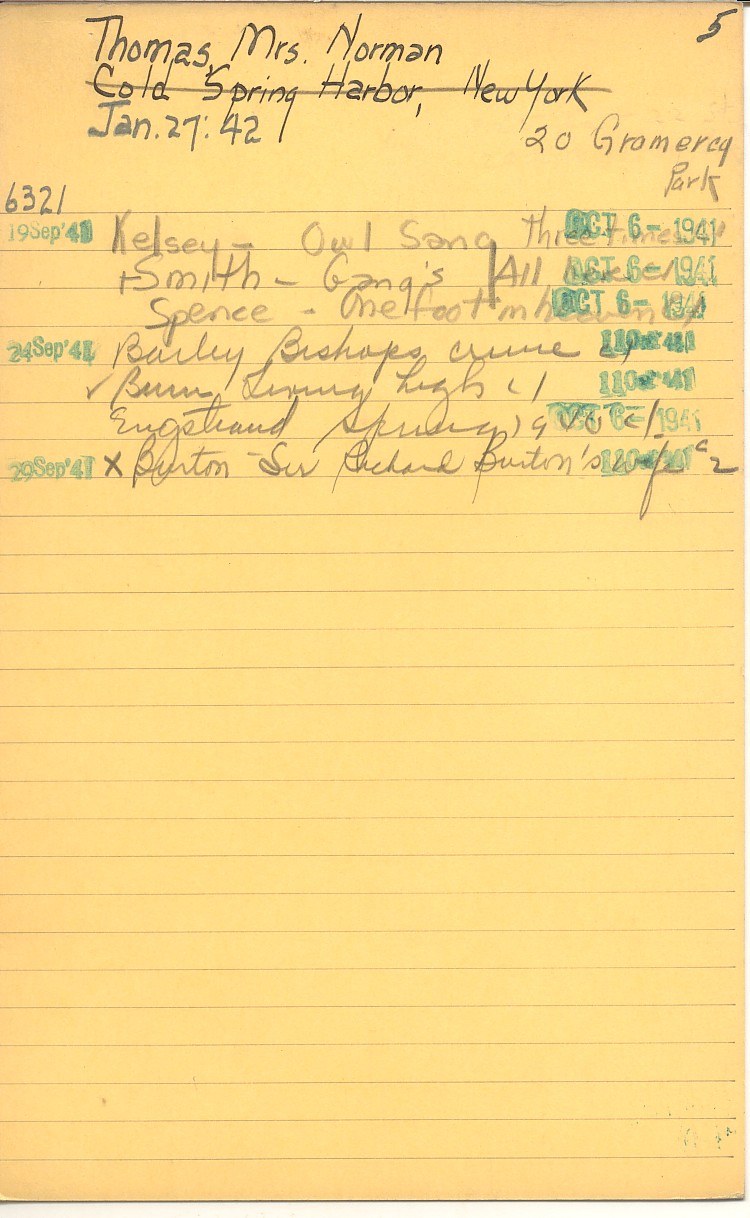 5
Thomas, Mrs. Norman
Cold Spring Harbor, New York
Jan. 27: 42
20 Gramercy
Park
6321
19Sep'41 Kelsey - Owl Sang three times OCT 6 - 1941
+Smith - Gang's All here c1 OCT 6 - 1941
Spence - One foot in heaven OCT 6 - 1941
24Sep'41 Barley Bishops crime 11Oct'41
✓ Burn Living high c1 11Oct'41
Engstrand Spring 1940 c1 OCT 6 - 1941
29Sep'41 X Burton - Sir Richard Burton's wife c2 11Oct'41